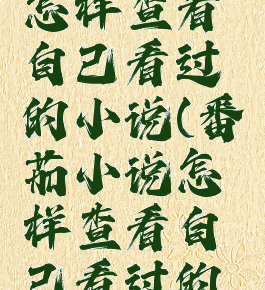 怎样查看
自己看过
的小说(番
茄小说怎
样查看自
己看过的